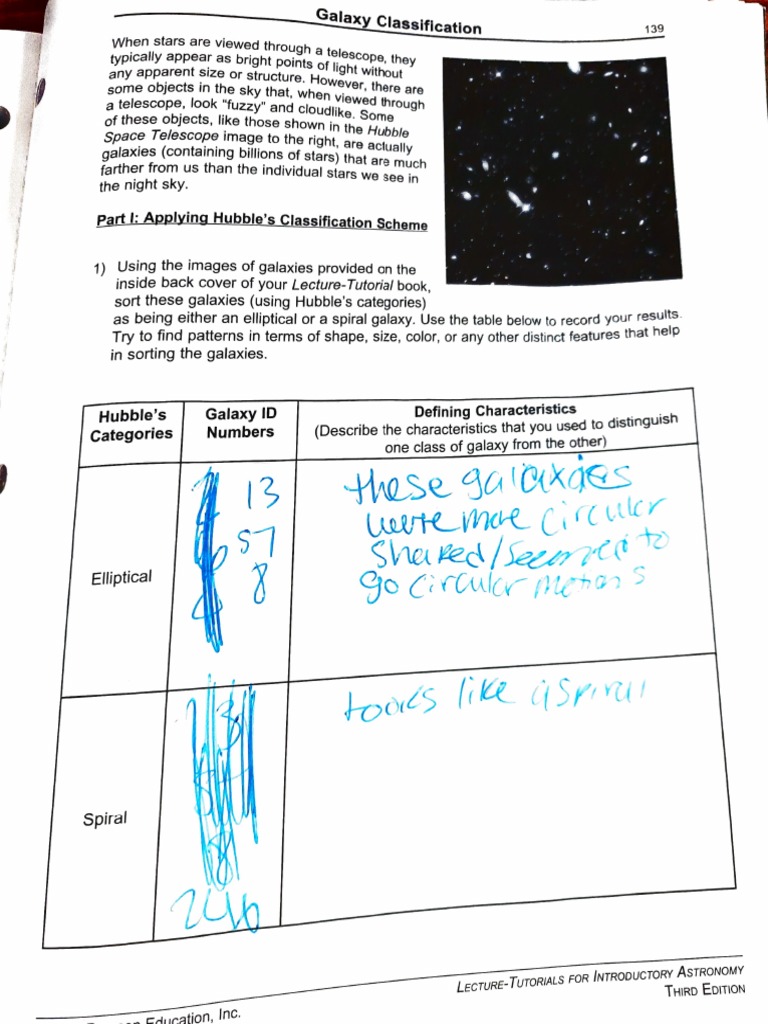 Galaxy Classification
139
When stars are viewed through a telescope, they
typically appear as bright points of light without
any apparent size or structure. However, there are
some objects in the sky that, when viewed through
a telescope, look "fuzzy" and cloudlike. Some
of these objects, like those shown in the Hubble
Space Telescope image to the right, are actually
galaxies (containing billions of stars) that are much
farther from us than the individual stars we see in
the night sky.
Part I: Applying Hubble's Classification Scheme
1) Using the images of galaxies provided on the
inside back cover of your Lecture-Tutorial book,
sort these galaxies (using Hubble's categories)
as being either an elliptical or a spiral galaxy. Use the table below to record your results.
Try to find patterns in terms of shape, size, color, or any other distinct features that help
in sorting the galaxies.
Hubble's
Categories
Galaxy ID
Numbers
Defining Characteristics
(Describe the characteristics that you used to distinguish
one class of galaxy from the other)
Elliptical
13
57
8
these galaxies
were more circular
shaped/seemed to
go circular motions
Spiral
246
looks like a spiral
Education, Inc.
LECTURE-TUTORIALS FOR INTRODUCTORY ASTRONOMY
THIRD EDITION